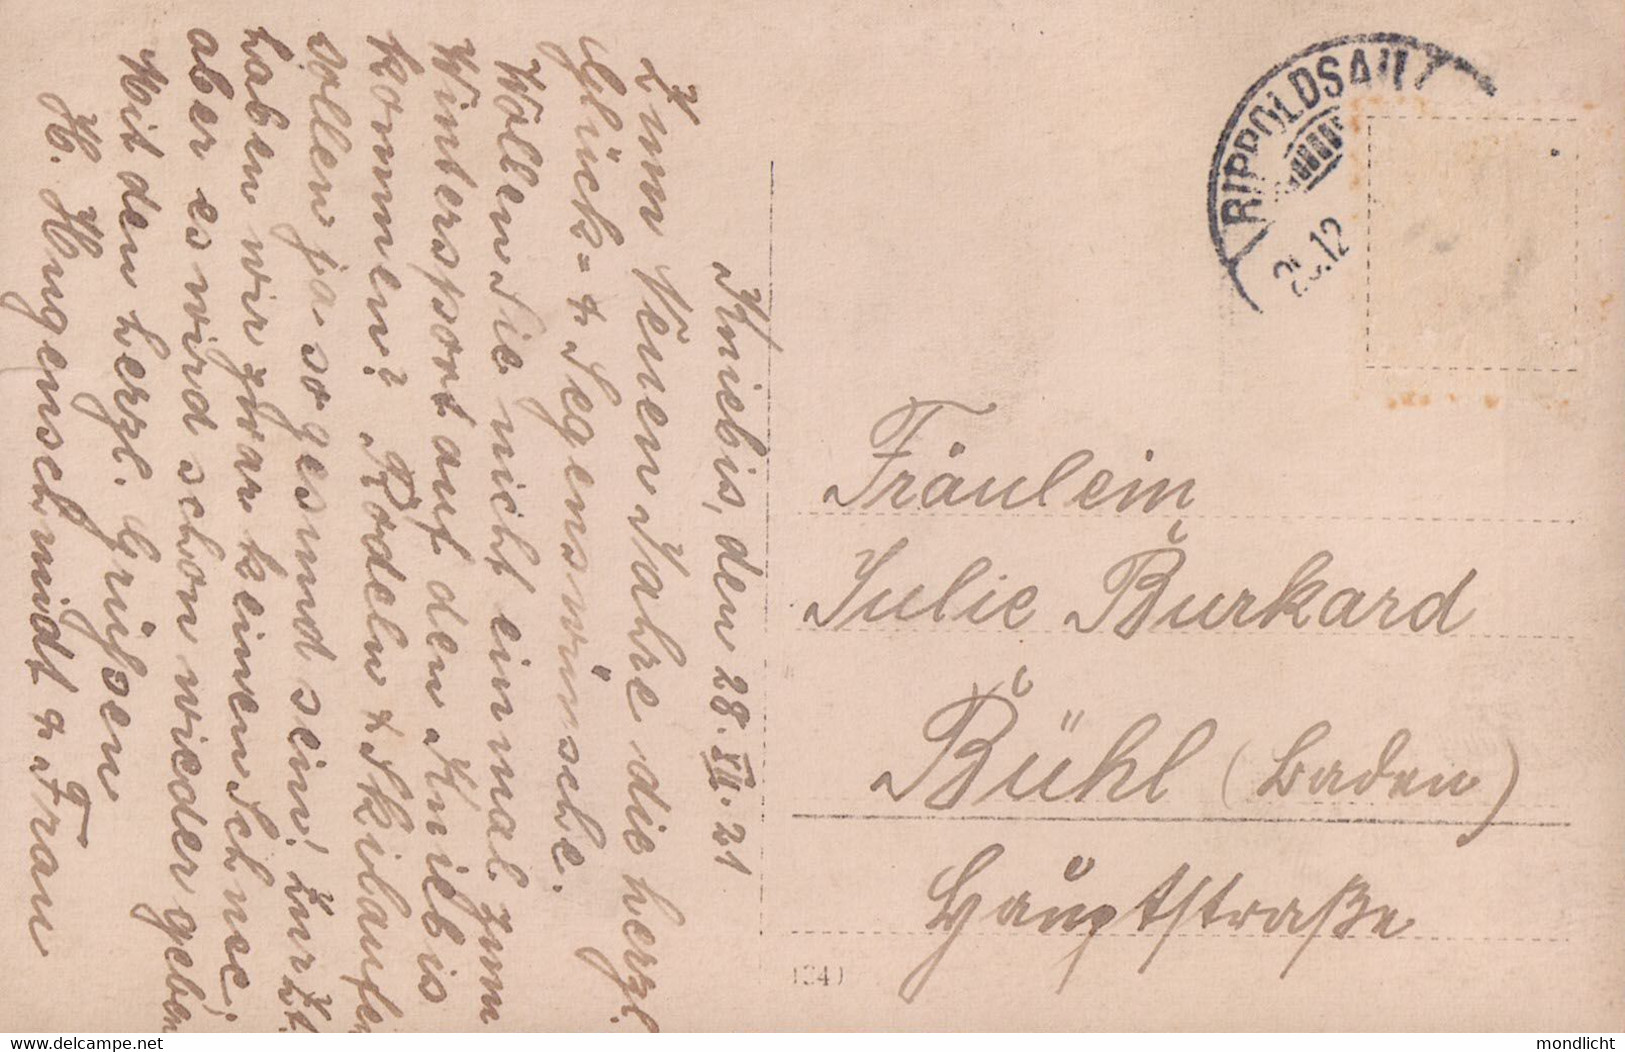 Kniebis, den 28. XII. 21
Zum Neuen Jahre die herzl.
Glück= & Segenswünsche.
Wollen Sie nicht einmal zum
Wintersport auf den Kniebis
kommen? Rodeln & Skilaufen
sollen ja so gesund sein! Zurzt.
haben wir zwar keinen Schnee,
aber es wird schon wieder geben
Mit den herzl. Grüßen
H. Hugenschmidt & Frau
RIPPOLDSAU
.12
Fräulein
Julie Burkard
Bühl (Baden)
Hauptstraße
(34)
delcampe.net
mondlicht